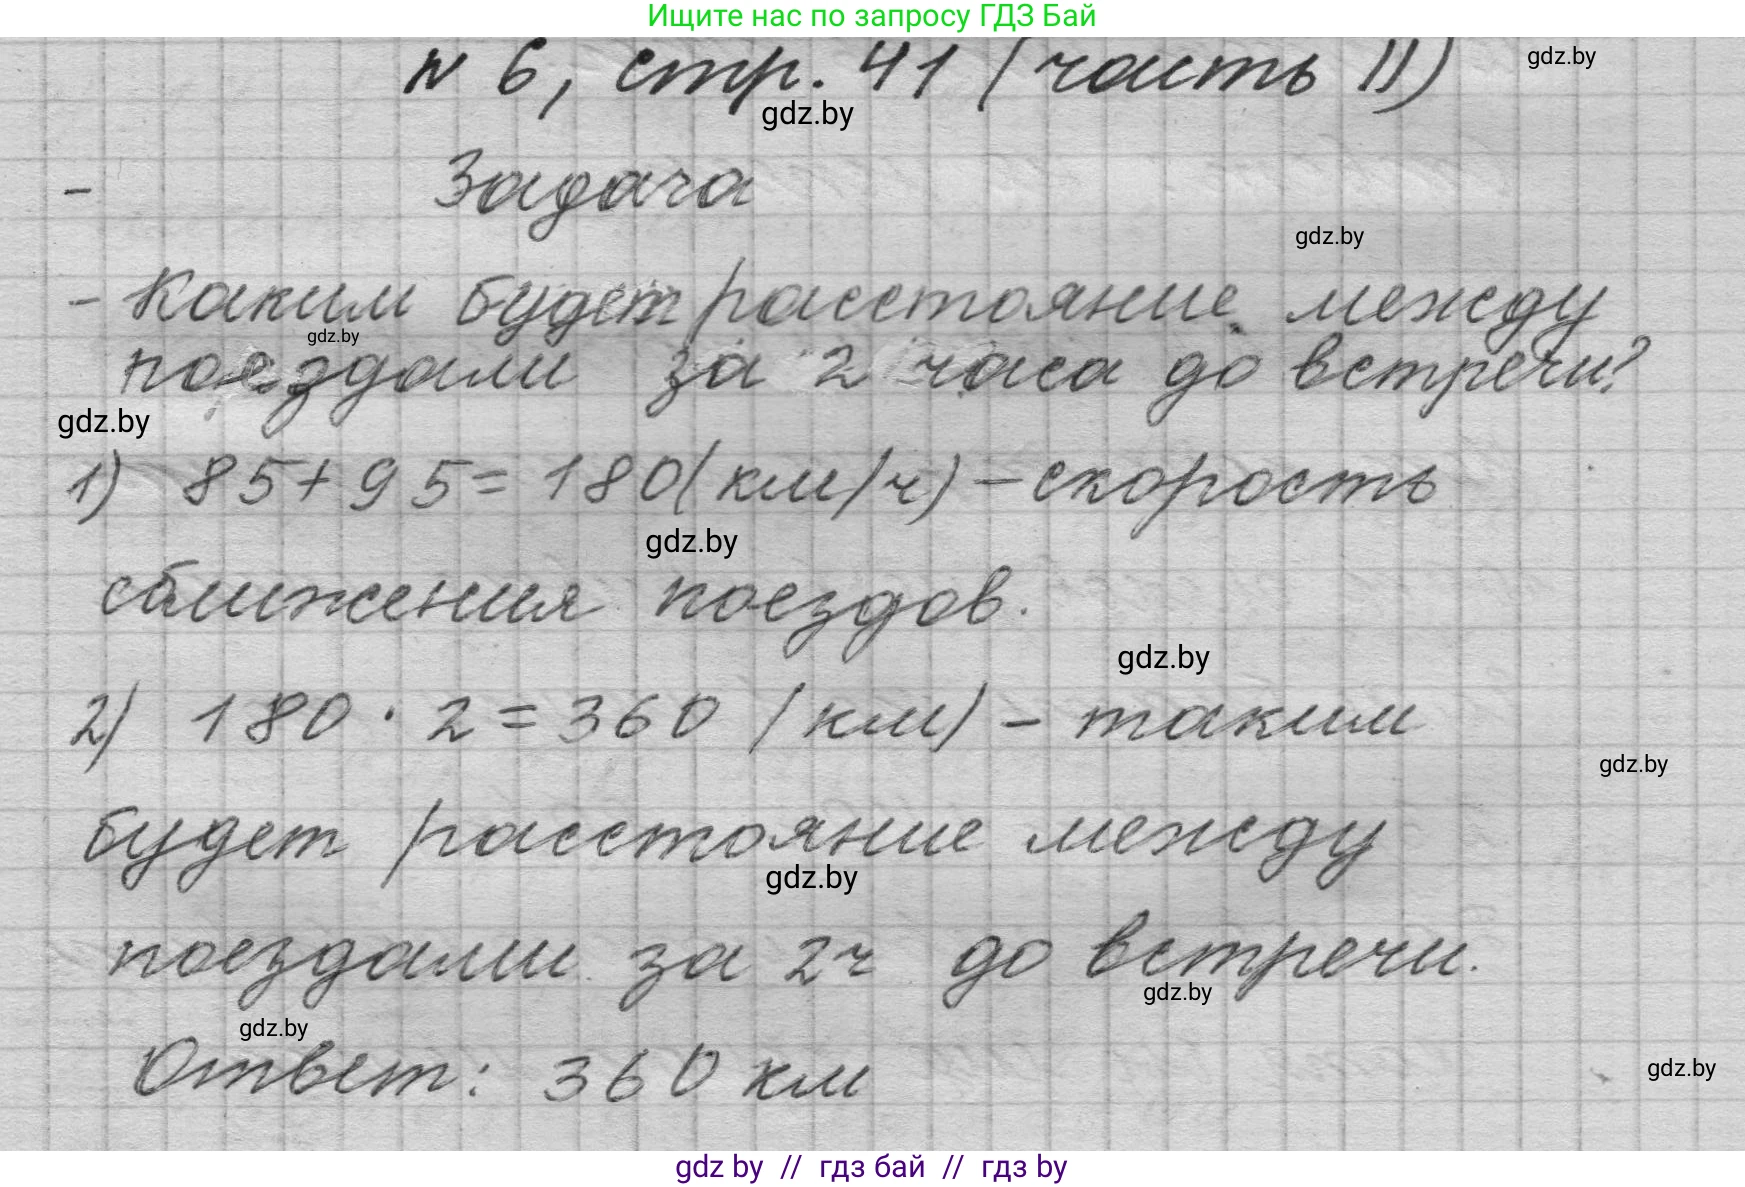 Ищите нас по запросу ГДЗ Бай
N 6, стр. 41 (часть II)
gdz.by
gdz.by
- Задача
gdz.by
- Каким будет расстояние между
gdz.by
поездами за 2 часа до встречи?
gdz.by
1) 85+95=180(км/ч) – скорость
gdz.by
сближения поездов.
gdz.by
2) 180 · 2 = 360 (км) – таким
gdz.by
будет расстояние между
gdz.by
поездами за 2ч до встречи.
gdz.by
gdz.by
Ответ: 360 км
gdz.by
gdz by // гдз бай // гдз by